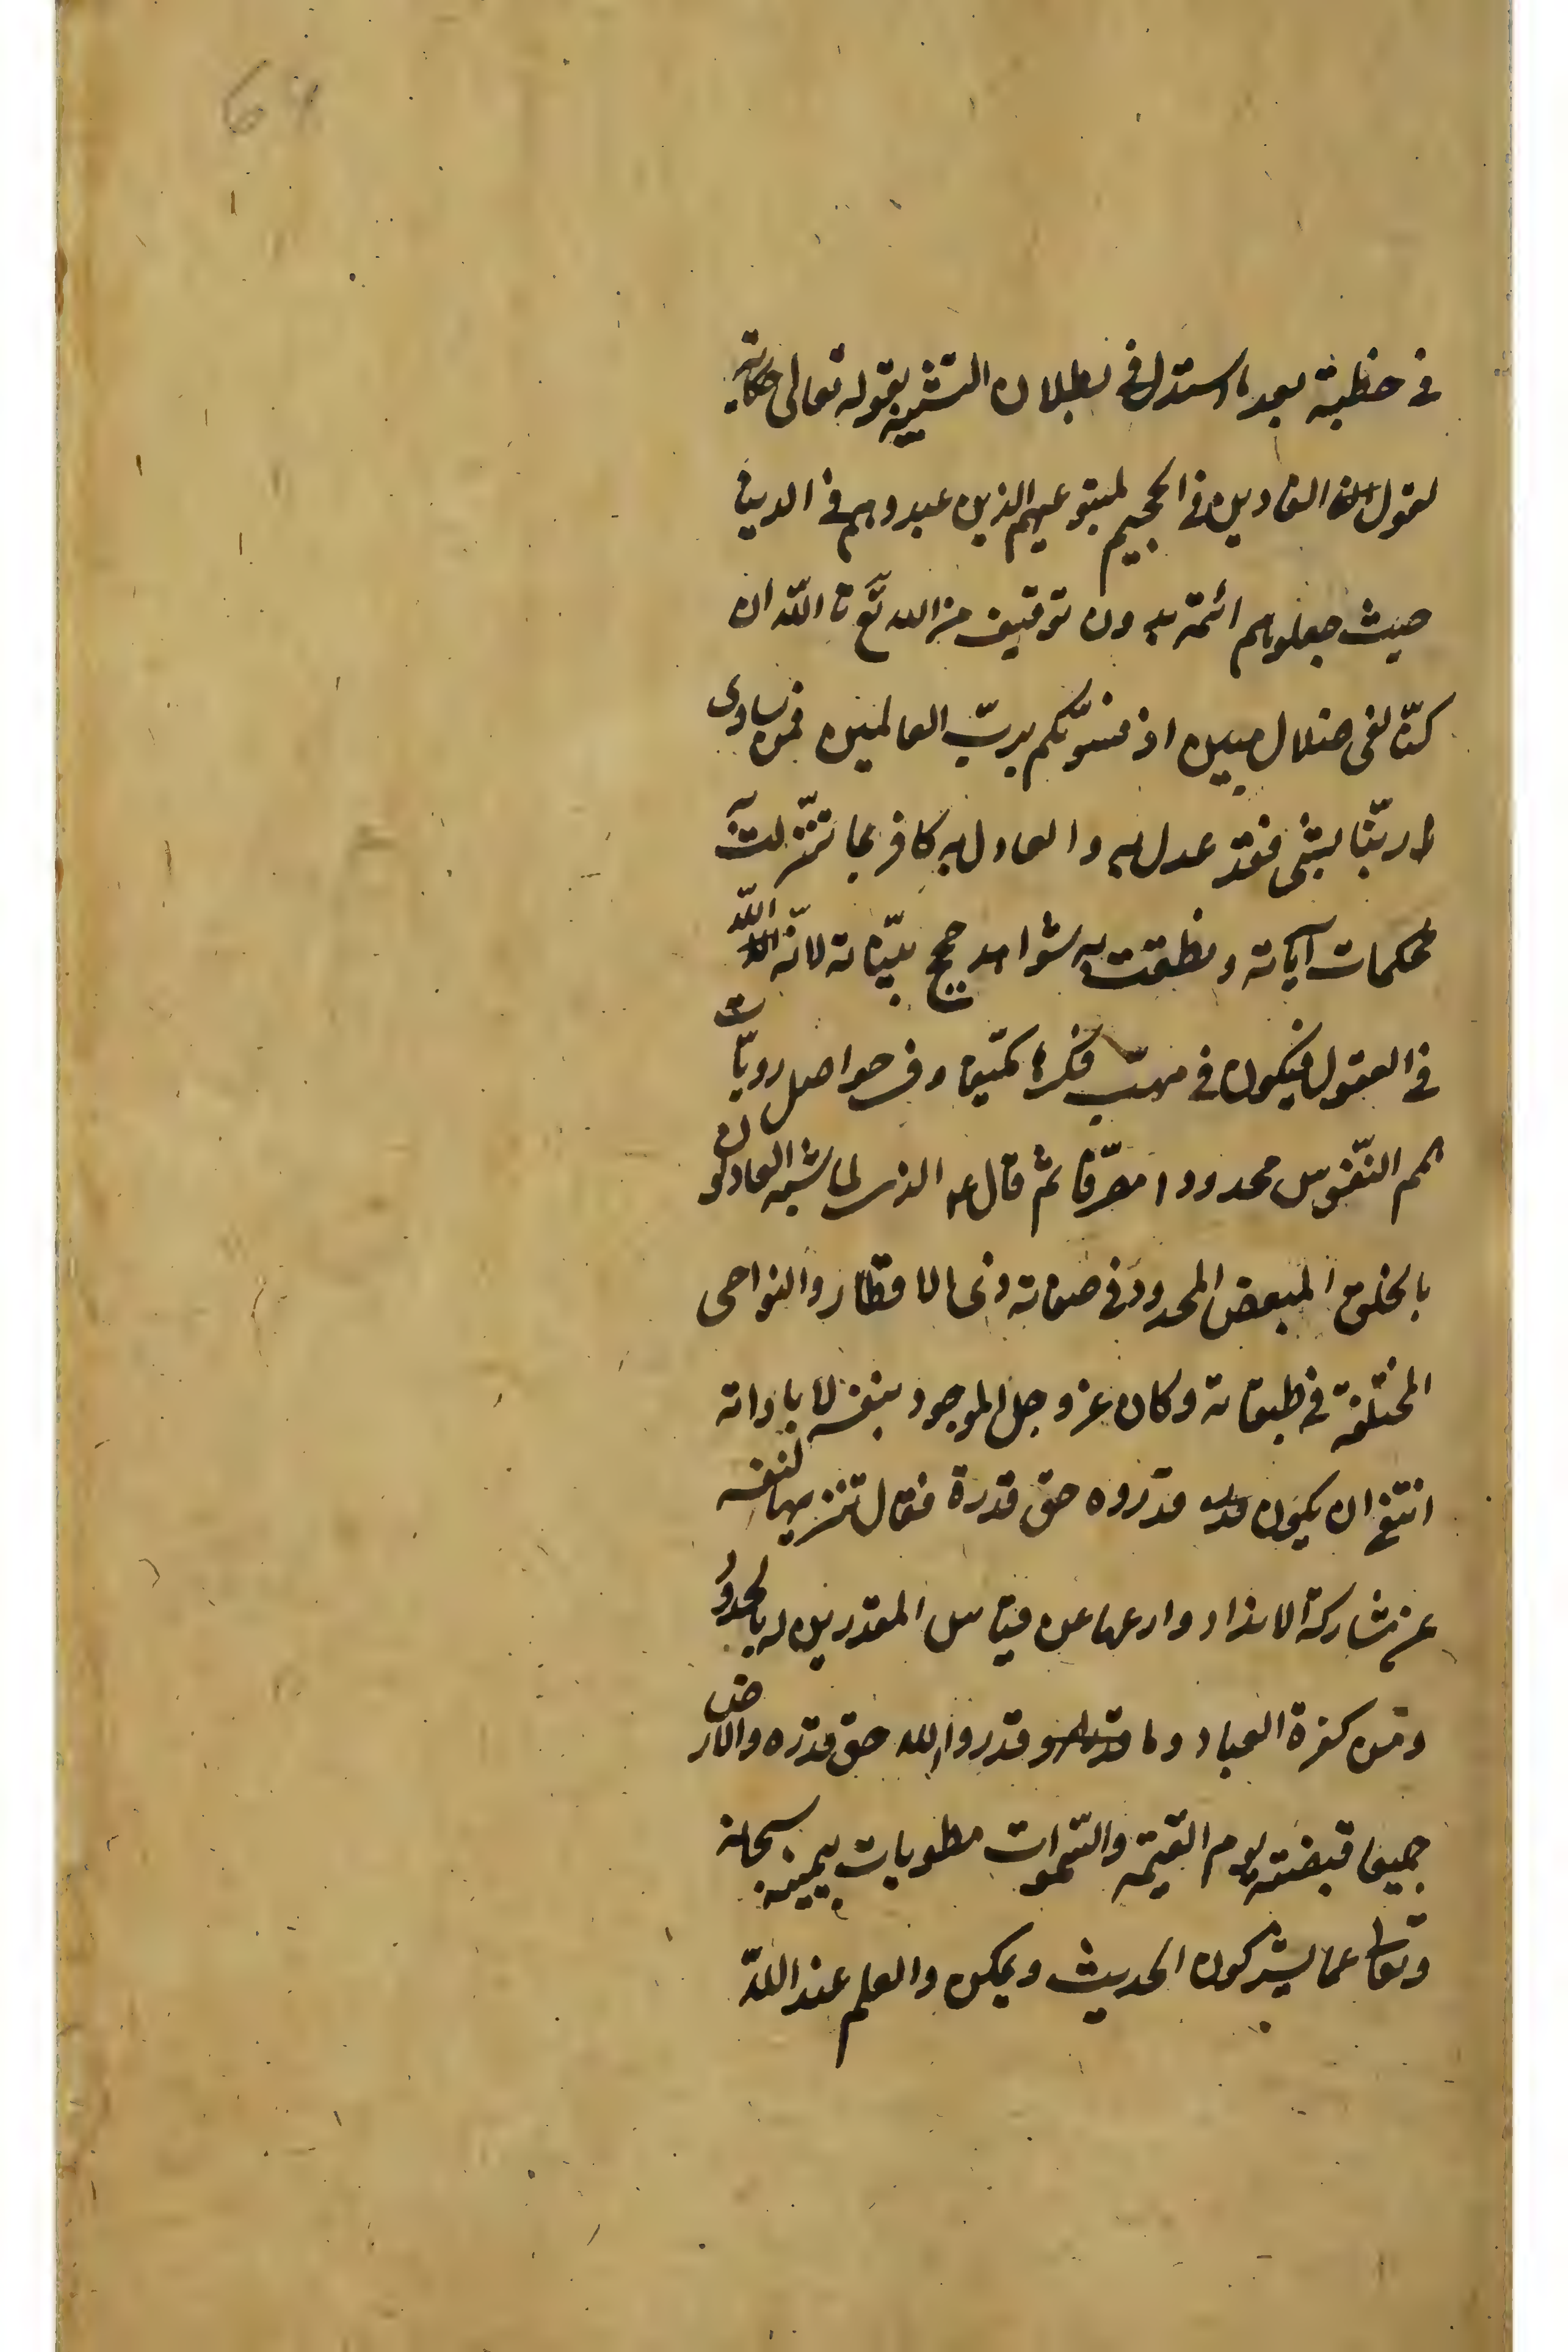 في خطبة بعد ما استدل في بطلان التشبيه بقوله تعالى حكاية
لقول الغاوين في الجحيم لمتبوعيهم الذين عبدوهم في الدنيا
حيث جعلوهم ائمة بدون توقيف من الله تع تا الله ان
كنّا لفى ضلال مبين اذ نسوّيكم بربّ العالمين فمن ساوى
ربّنا بشئ فقد عدل به والعادل به كافر بما تنزّلت به
محكمات آياته ونطقت به شواهد حجج بيّناته لانّه الله
في العقول فيكون في مهبّ فكرها مكيّفا وفي حواصل رويّات
همم النّفوس محدودا مصرّفا ثم قال الذى لما شبّهه العادلون
بالخلق المبعض المحدود في صفاته ذى الاقطار والنواحى
المختلفة في طبقاته وكان عز وجل الموجود بنفسه لا باداته
انتفى ان يكون قدروه حق قدرة فقال تنزيها لنفسه
عن مشاركة الانداد وارتفاعا عن قياس المقدرين له بالحدود
من كفرة العباد وما قدروا الله حق قدره والارض
جميعا قبضته يوم القيمه والسّموات مطويات بيمينه سبحانه
وتعالى عما يشركون الحديث ويمكن والعلم عند اللّه